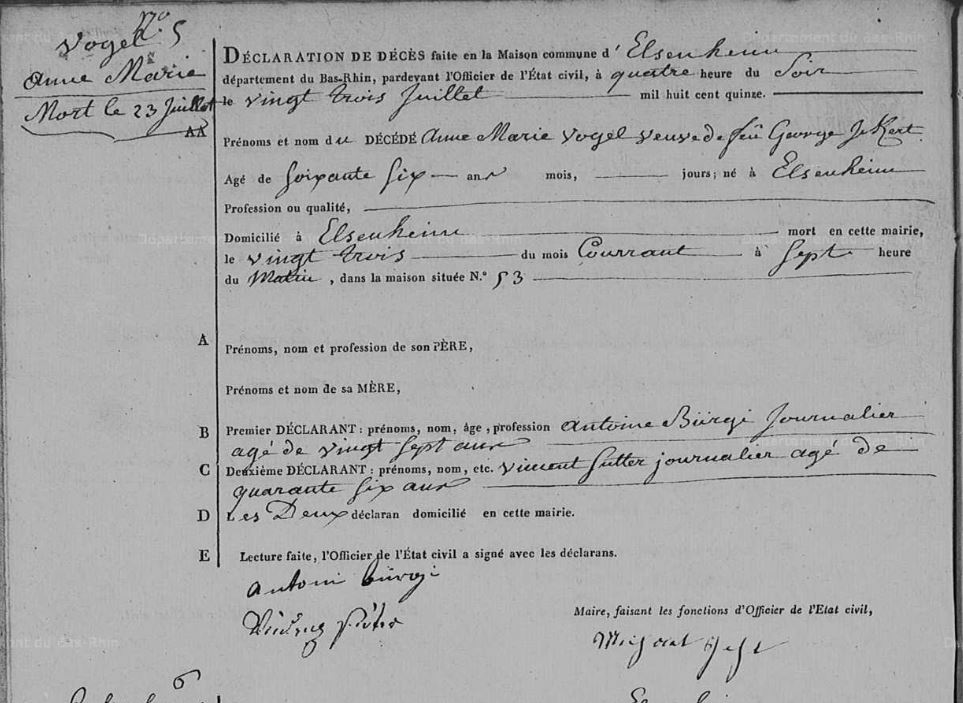 N.º 5
Vogel
anne Marie
Mort le 23 Juillet
AA
DÉCLARATION DE DÉCÈS faite en la Maison commune d' Elsenheim
département du Bas-Rhin, pardevant l'Officier de l'État civil, à quatre heure du Soir
le vingt trois Juillet mil huit cent quinze.
Prénoms et nom du DÉCÉDÉ Anne Marie Vogel veuve de feü George Jekert
Agé de Soixante Six ans mois, jours; né à Elsenheim
Profession ou qualité,
Domicilié à Elsenheim mort en cette mairie,
le vingt trois du mois Courrant à Sept heure
du Matin , dans la maison située N.º 53
A
Prénoms, nom et profession de son PÈRE,
Prénoms et nom de sa MÈRE,
B Premier DÉCLARANT : prénoms, nom, âge, profession antoine Bürgi Journalier
agé de vingt Sept ans
C Deuxième DÉCLARANT : prénoms, nom, etc. Vincent Sutter journalier agé de
quarante Six ans
D Les Deux déclaran domicilié en cette mairie.
E Lecture faite, l'Officier de l'État civil a signé avec les déclarans.
antoni bürgi
Maire, faisant les fonctions d'Officier de l'Etat civil,
6